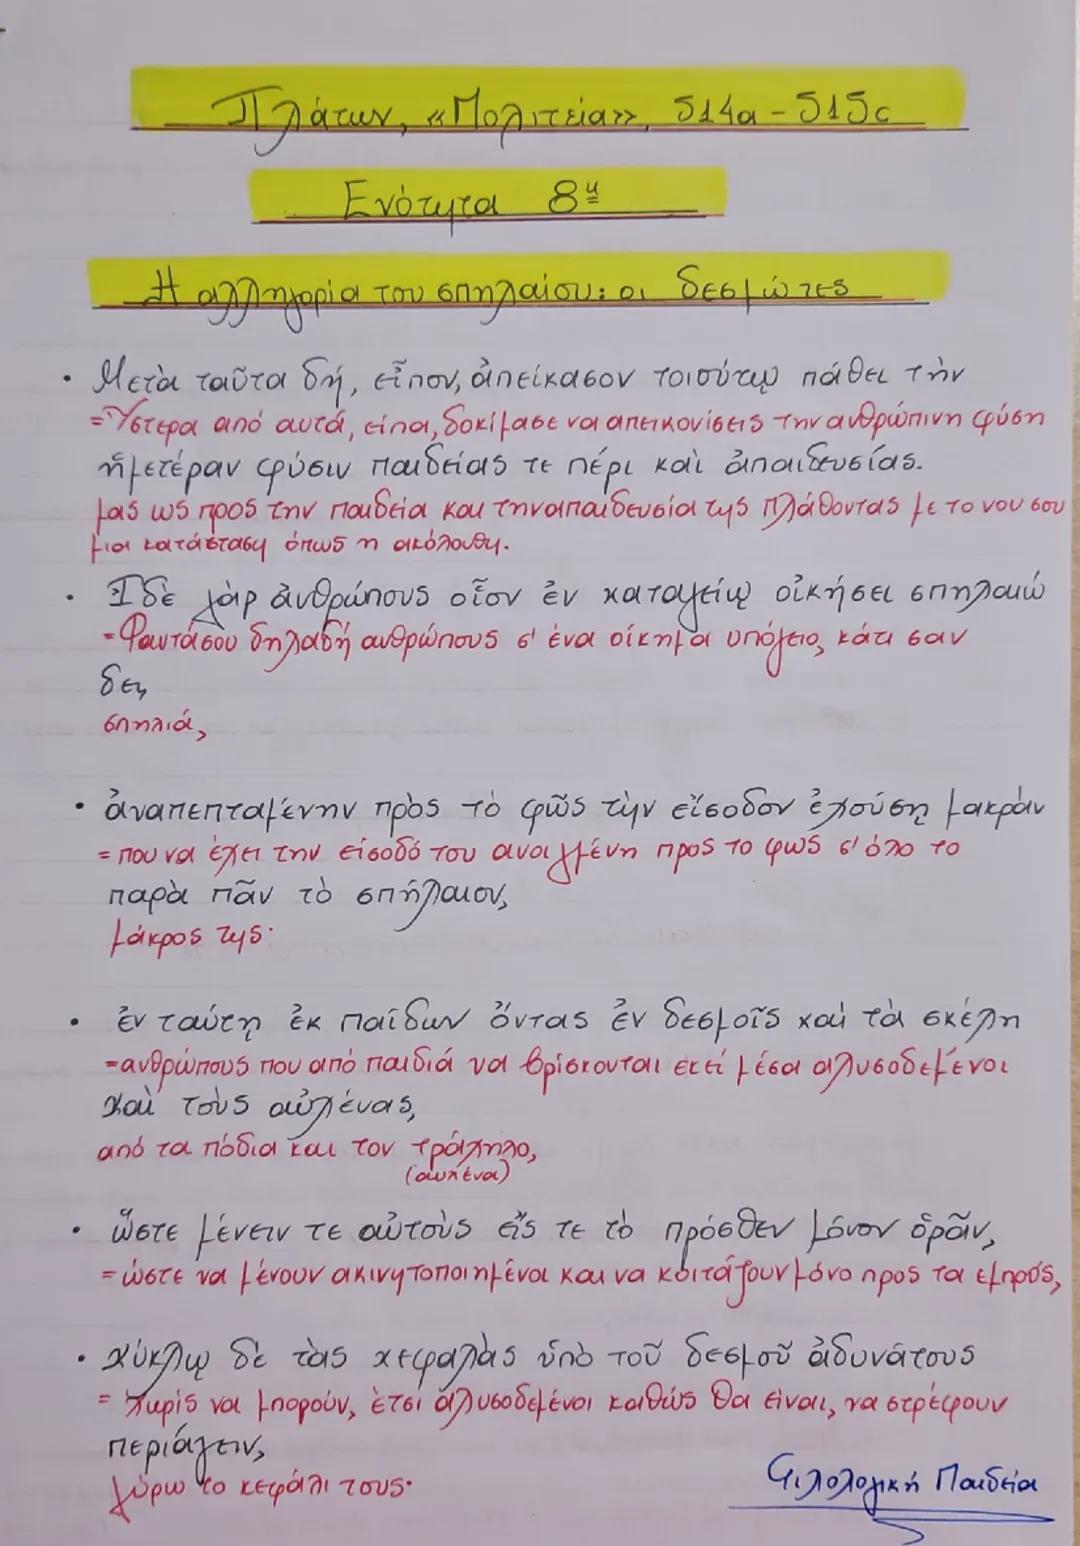 Πλάτων, «Πολιτεία», 514a - 515c
Ενότητα 8η
Η αλληγορία του σπηλαίου: οι δεσμώτες
• Μετὰ ταῦτα δή, εἶπον, ἀπείκασον τοιούτῳ πάθει τὴν
= Ύστερα από αυτά, είπα, δοκίμασε να απεικονίσεις την ανθρώπινη φύση
ἡμετέραν φύσιν παιδείας τε πέρι καὶ ἀπαιδευσίας.
μας ως προς την παιδεία και την απαιδευσία της πλάθοντας με το νου σου
μια κατάσταση όπως η ακόλουθη.
• Ἰδὲ γὰρ ἀνθρώπους οἷον ἐν καταγείῳ οἰκήσει σπηλαιώ
= Φαντάσου δηλαδή ανθρώπους σ' ένα οίκημα υπόγειο, κάτι σαν
δει,
σπηλιά,
• ἀναπεπταμένην πρὸς τὸ φῶς τὴν εἴσοδον ἐχούσῃ μακρὰν
= που να έχει την είσοδό του ανοιγμένη προς το φως σ' όλο το
παρὰ πᾶν τὸ σπήλαιον,
μάκρος της·
• ἐν ταύτῃ ἐκ παίδων ὄντας ἐν δεσμοῖς καὶ τὰ σκέλη
= ανθρώπους που από παιδιά να βρίσκονται εκεί μέσα αλυσοδεμένοι
καὶ τοὺς αὐχένας,
από τα πόδια και τον τράχηλο,
(αυχένα)
• ὥστε μένειν τε αὐτοὺς εἴς τε τὸ πρόσθεν μόνον ὁρᾶν,
= ώστε να μένουν ακινητοποιημένοι και να κοιτάζουν μόνο προς τα εμπρός,
• κύκλῳ δὲ τὰς κεφαλὰς ὑπὸ τοῦ δεσμοῦ ἀδυνάτους
= χωρίς να μπορούν, έτσι αλυσοδεμένοι καθώς θα είναι, να στρέφουν
περιάγειν,
γύρω το κεφάλι τους·
Φιλολογική Παιδεία